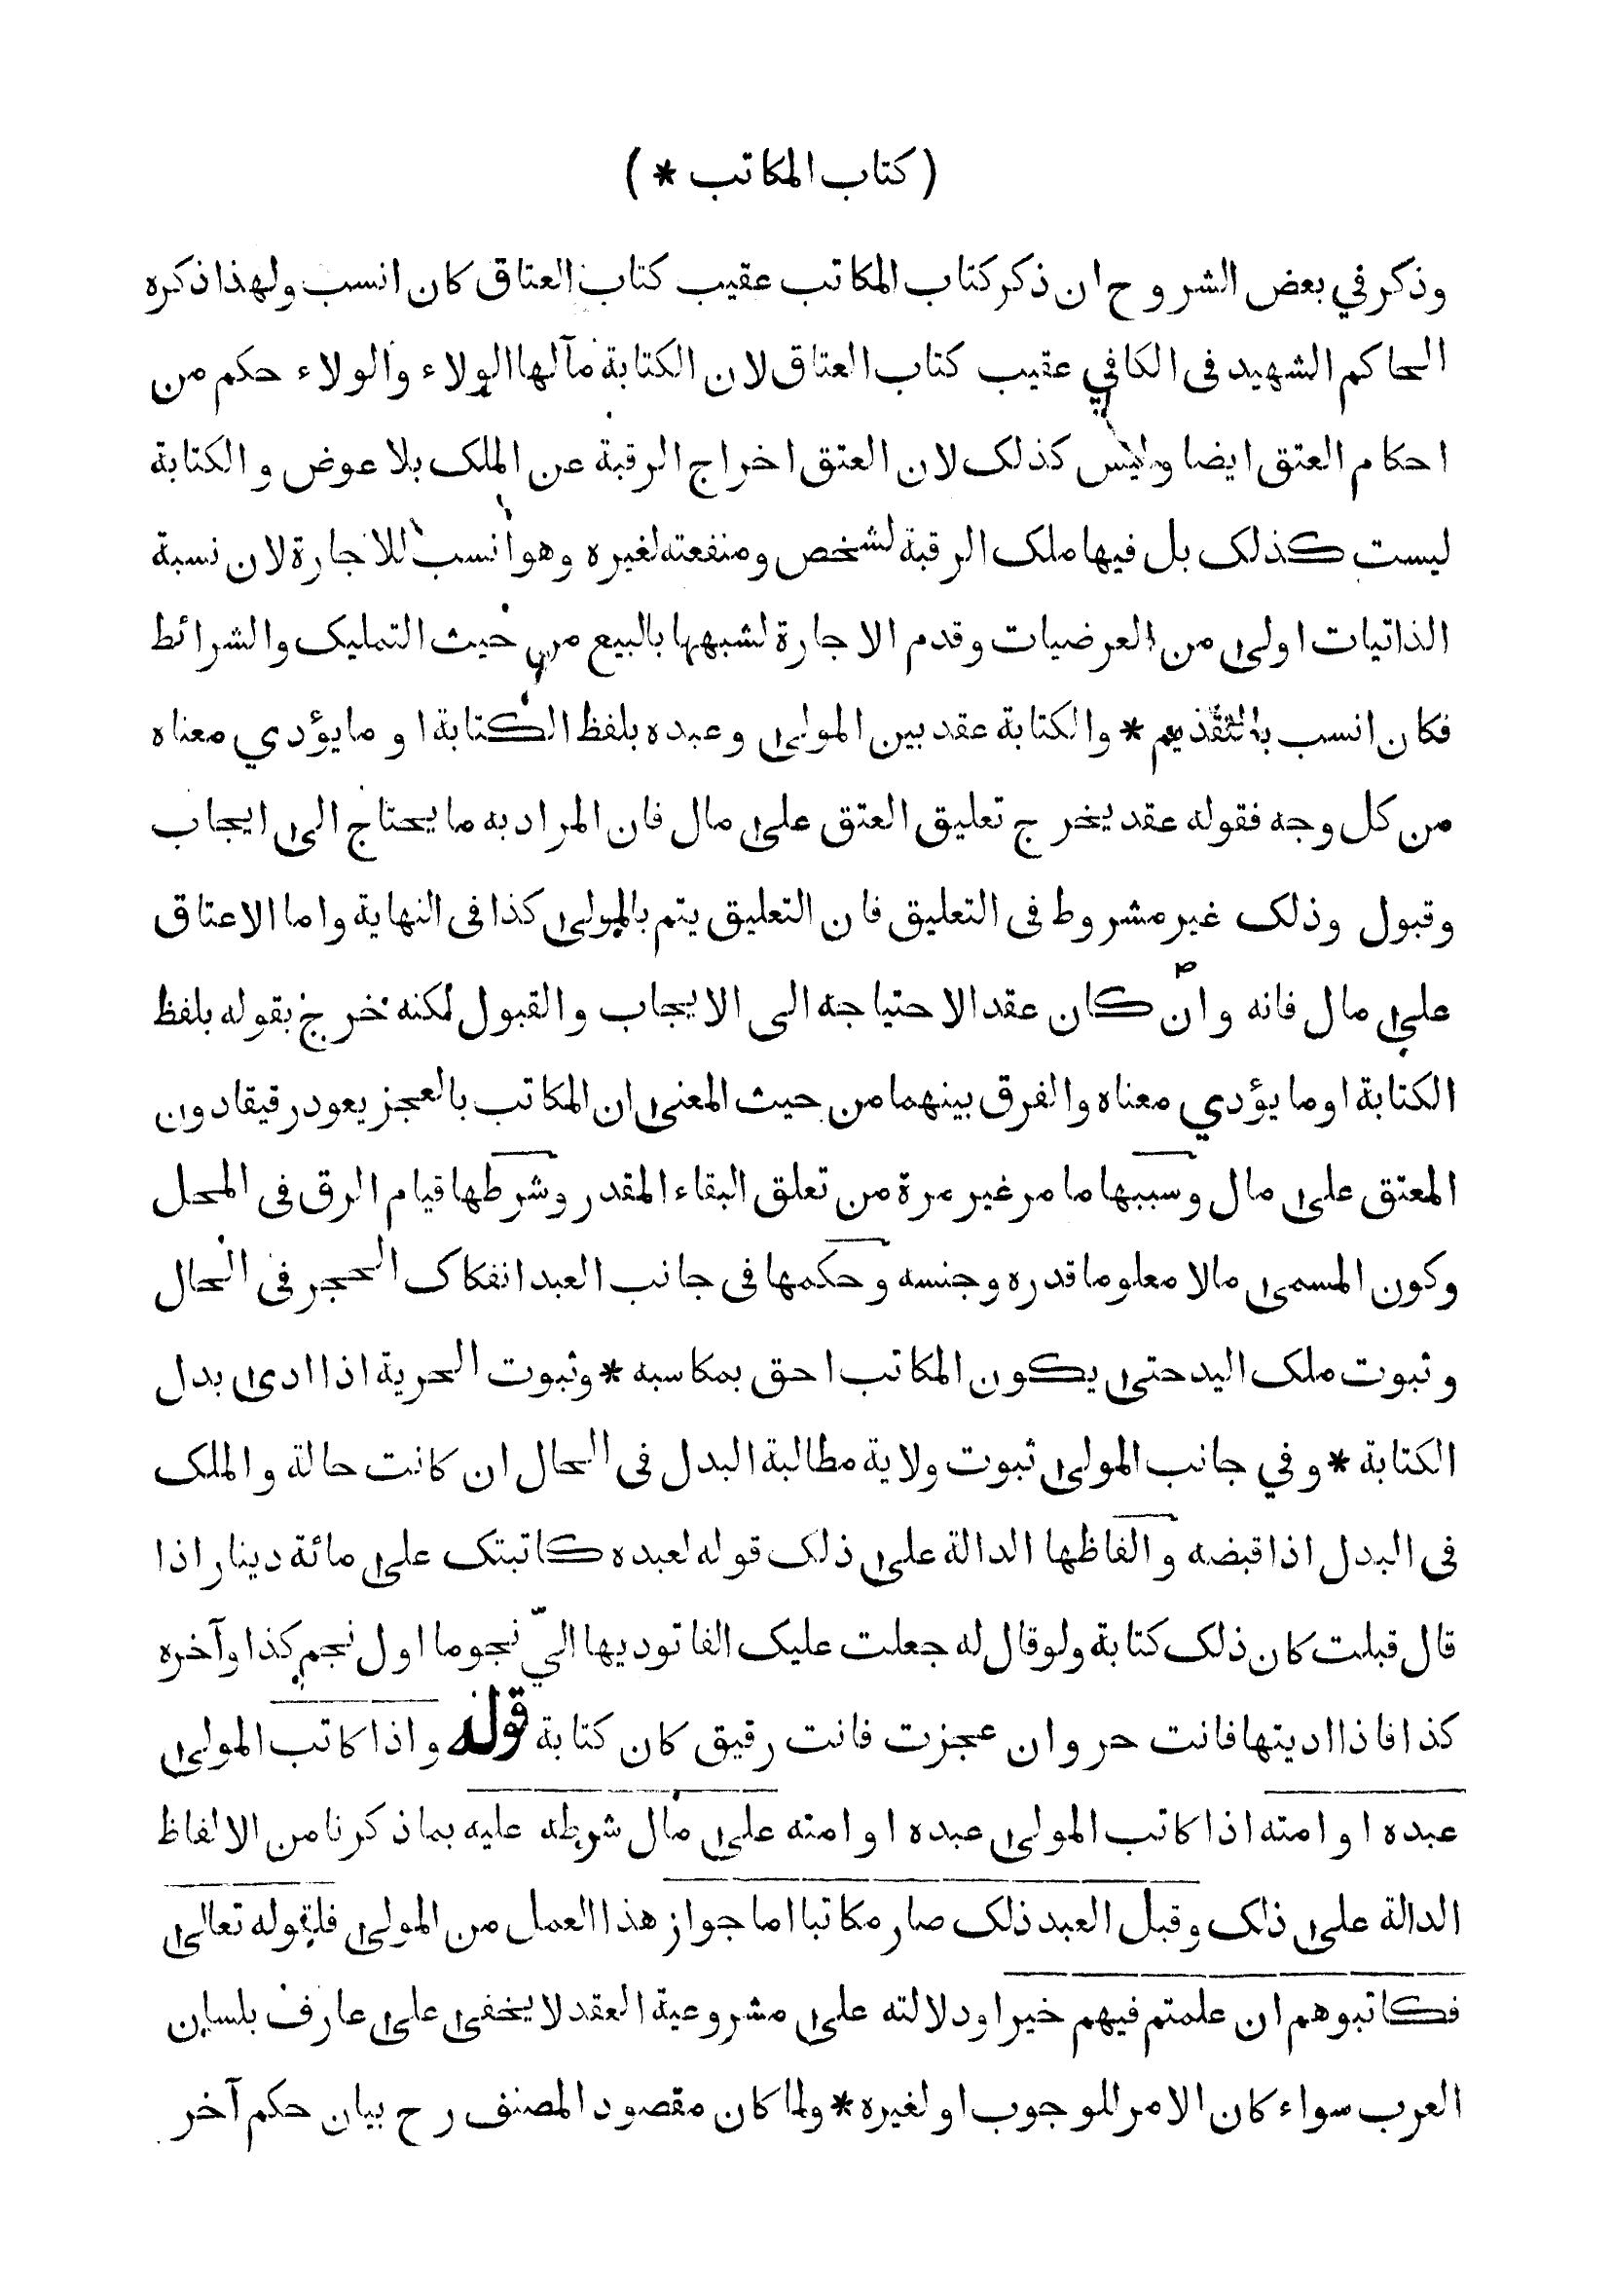 ( كتاب المكاتب * )
وذكر في بعض الشروح ان ذكر كتاب المكاتب عقيب كتاب العتاق كان انسب ولهذا ذكره
الحاكم الشهيد فى الكافي عقيب كتاب العتاق لان الكتابة مآلها الولاء والولاء حكم من
احكام العتق ايضا وليس كذلك لان العتق اخراج الرقبة عن الملك بلا عوض والكتابة
ليست كذلك بل فيها ملك الرقبة لشخص ومنفعته لغيره وهو انسب للاجارة لان نسبة
الذاتيات اولى من العرضيات وقدم الاجارة لشبهها بالبيع من حيث التمليك والشرائط
فكان انسب بالتقديم * والكتابة عقد بين المولى وعبده بلفظ الكتابة او ما يؤدي معناه
من كل وجه فقوله عقد يخرج تعليق العتق على مال فان المراد به ما يحتاج الى ايجاب
وقبول وذلك غير مشروط فى التعليق فان التعليق يتم بالمولى كذا فى النهاية واما الاعتاق
على مال فانه وان كان عقدا لاحتياجه الى الايجاب والقبول لكنه خرج بقوله بلفظ
الكتابة او ما يؤدي معناه والفرق بينهما من حيث المعنى ان المكاتب بالعجز يعود رقيقا دون
المعتق على مال وسببها ما مر غير مرة من تعلق البقاء المقدر وشرطها قيام الرق فى المحل
وكون المسمى مالا معلوما قدره وجنسه وحكمها فى جانب العبد انفكاك الحجر فى الحال
وثبوت ملك اليد حتى يكون المكاتب احق بمكاسبه * وثبوت الحرية اذا ادى بدل
الكتابة * وفي جانب المولى ثبوت ولاية مطالبة البدل فى الحال ان كانت حالة والملك
فى البدل اذا قبضه والفاظها الدالة على ذلك قوله لعبده كاتبتك على مائة دينار اذا
قال قبلت كان ذلك كتابة ولو قال له جعلت عليك الفا توديها اليّ نجوما اول نجم كذا وآخره
كذا فاذا اديتها فانت حر وان عجزت فانت رقيق كان كتابة قوله واذا كاتب المولى
عبده او امته اذا كاتب المولى عبده او امته على مال شرطه عليه بما ذكرنا من الالفاظ
الدالة على ذلك وقبل العبد ذلك صار مكاتبا اما جواز هذا العمل من المولى فلقوله تعالى
فكاتبوهم ان علمتم فيهم خيرا ودلالته على مشروعية العقد لا يخفى على عارف بلسان
العرب سواء كان الامر للوجوب او لغيره * ولما كان مقصود المصنف رح بيان حكم آخر